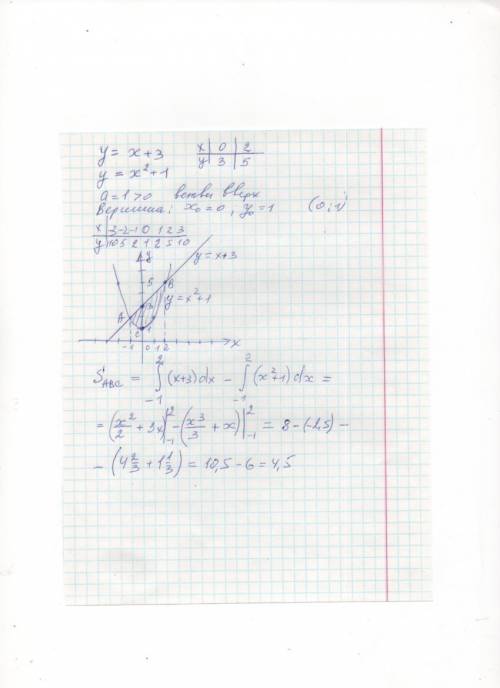 y = x+3   x | 0 | 2
y | 3 | 5
y = x²+1
a=1>0 ветви вверх
Вершина: x₀=0, y₀=1 (0;1)
x -3 -2 -1 0 1 2 3
y 10 5 2 1 2 5 10
y
y=x+3
5
B
y=x²+1
3
A
C 1
-1 0 1 2 x
S_ABC = ∫₋₁² (x+3)dx − ∫₋₁² (x²+1)dx =
= (x²/2 + 3x)|₋₁² − (x³/3 + x)|₋₁² = 8−(−2,5) −
− (4 2/3 + 1 1/3) = 10,5−6 = 4,5